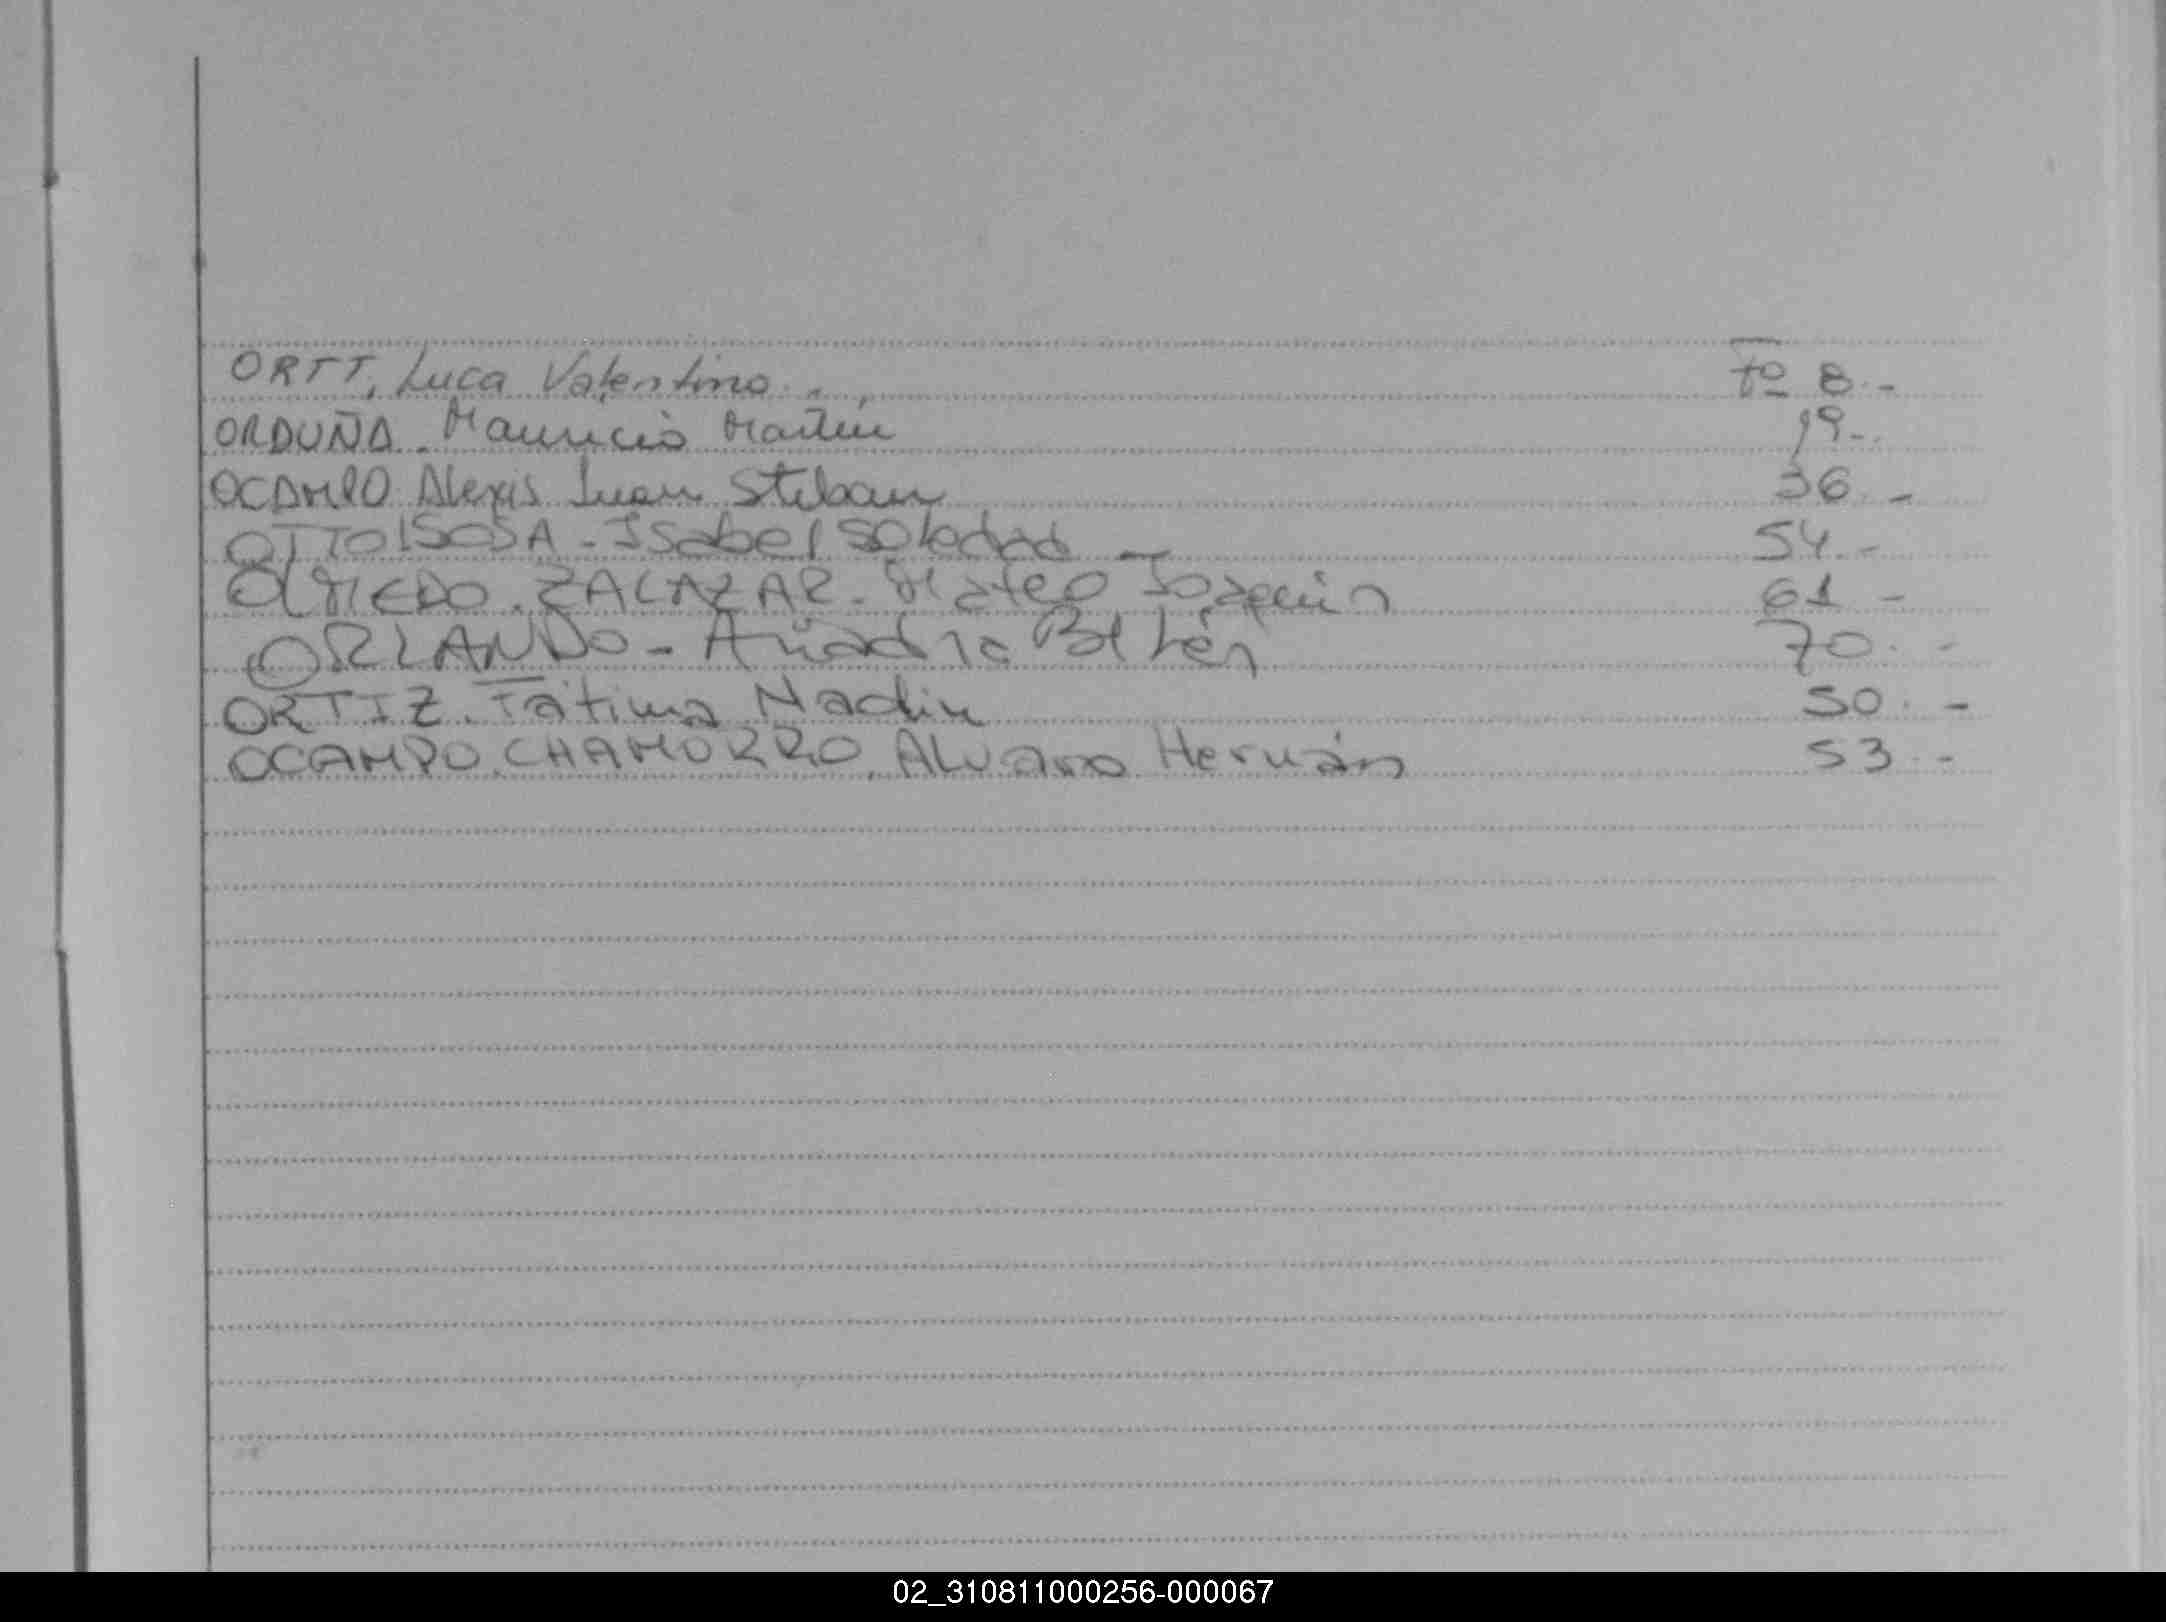 ORTT, Luca Valentino. - Fº 8.-
ORDUÑA. Mauricio Martin 19-.
OCAMPO Alexis Juan Steban 36.-
OTTO SOSA - Isabel Soledad - 54.-
OLMEDO. ZALAZAR. Mateo Joaquin 61 -
ORLANDO - Ariadna Belén 70. -
ORTIZ. Fátima Nadin 50. -
OCAMPO. CHAMORRO. Alvaro Hernán 53.-
02_310811000256-000067